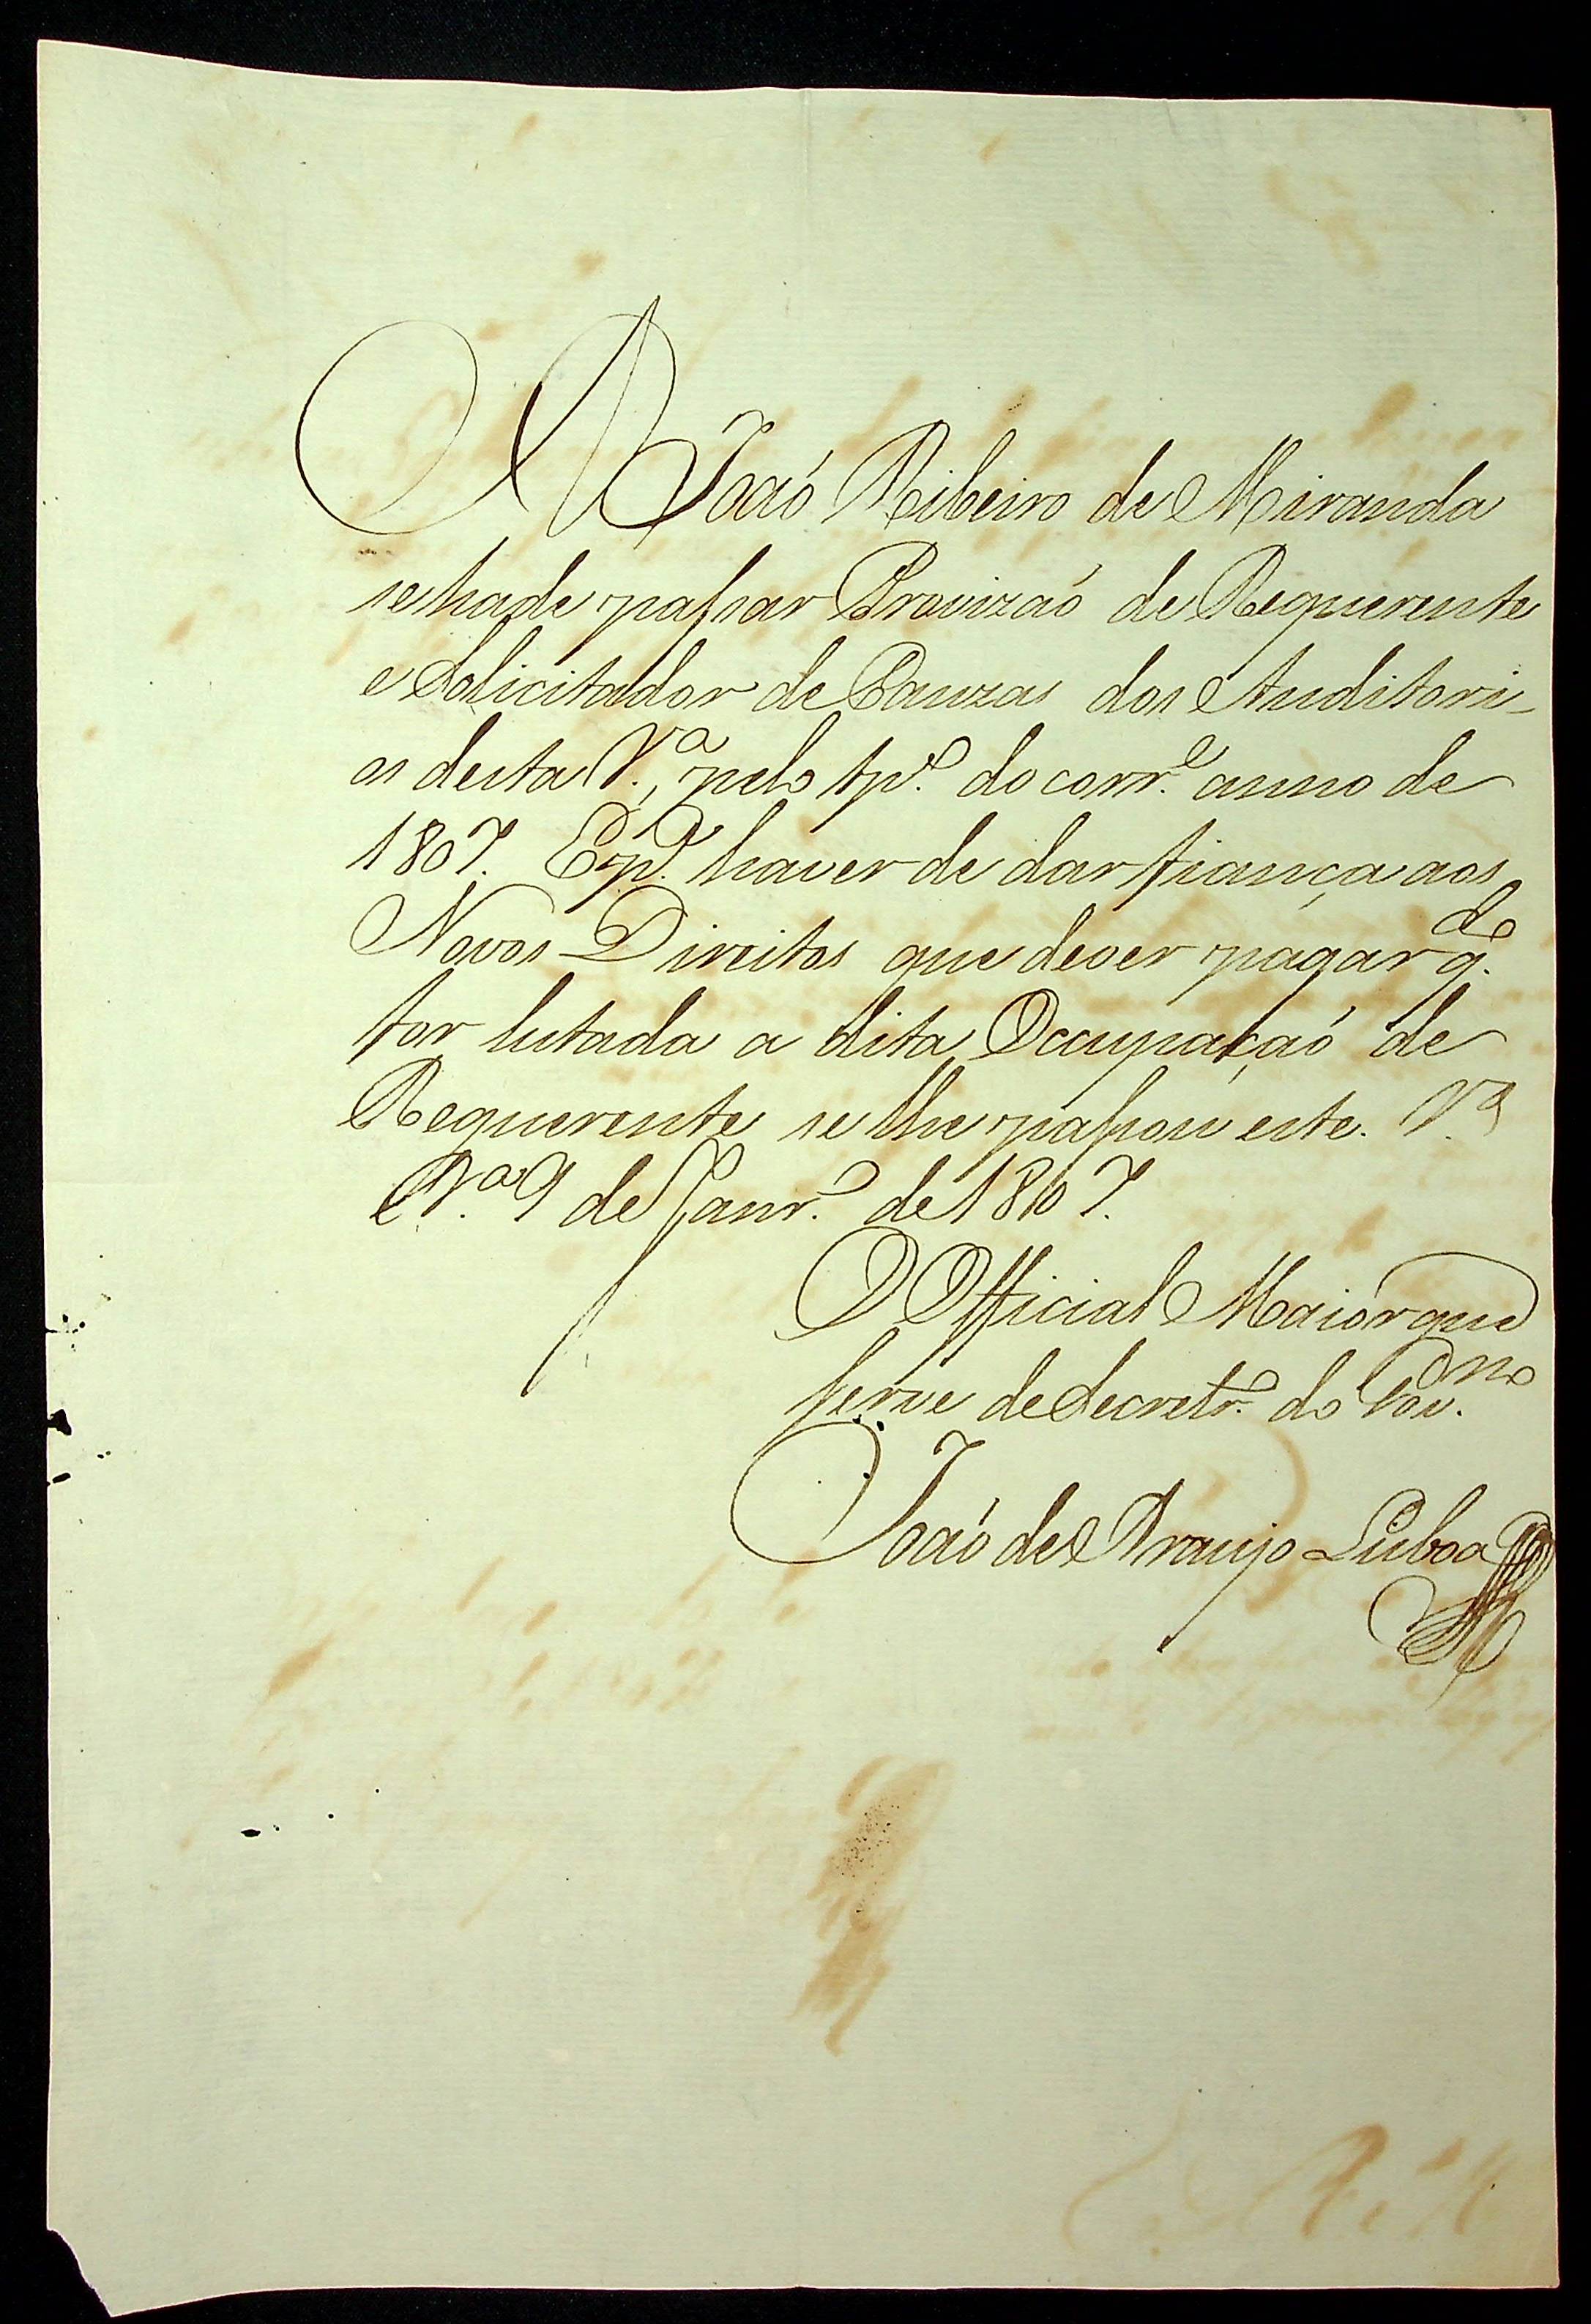 A Joaó Ribeiro de Miranda
se hade passar Provizaó de Requerente
e Solicitador de Cauzas dos Auditori-
os desta V.ª, pelo tp.º do corr.e anno de
1807. E p.ª haver de dar fiança aos
Novos Direitos que dever pagar q.do
for lutada a dita Occupaçaó de
Requerente se lhe passou este. V.ª
N.ª 9 de Janr.º de 1807.
O Official Maior que
serve de Secretr.º do Gov.erno
Joaó de Araujo Lisboa